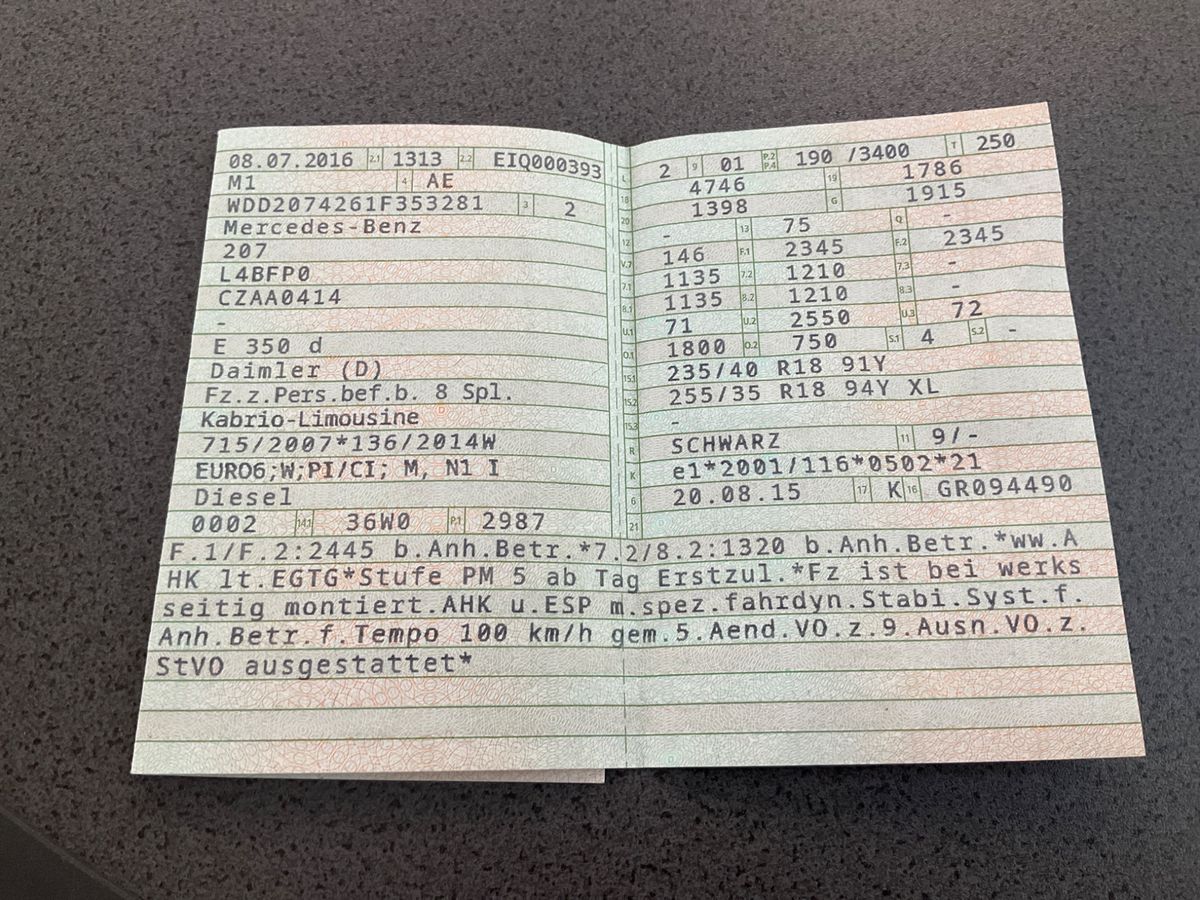 08.07.2016 2.1 1313 2.2 EIQ000393
M1 4 AE
WDD2074261F353281 3 2
Mercedes-Benz
207
L4BFP0
CZAA0414
-
E 350 d
Daimler (D)
Fz.z.Pers.bef.b. 8 Spl.
Kabrio-Limousine
715/2007*136/2014W
EURO6;W;PI/CI; M, N1 I
Diesel
0002 14.1 36W0 P.1 2987
L 2 9 01 P.2 P.4 190 /3400 T 250
18 4746 19 1786
20 1398 G 1915
12 - 13 75 Q -
V.7 146 F.1 2345 F.2 2345
7.1 1135 7.2 1210 7.3 -
8.1 1135 8.2 1210 8.3 -
U.1 71 U.2 2550 U.3 72
O.1 1800 O.2 750 S.1 4 S.2 -
15.1 235/40 R18 91Y
15.2 255/35 R18 94Y XL
15.3 -
R SCHWARZ 11 9/-
K e1*2001/116*0502*21
6 20.08.15 17 K 16 GR094490
21
F.1/F.2:2445 b.Anh.Betr.*7.2/8.2:1320 b.Anh.Betr.*ww.A
HK lt.EGTG*Stufe PM 5 ab Tag Erstzul.*Fz ist bei werks
seitig montiert.AHK u.ESP m.spez.fahrdyn.Stabi.Syst.f.
Anh.Betr.f.Tempo 100 km/h gem.5.Aend.VO.z.9.Ausn.VO.z.
StVO ausgestattet*